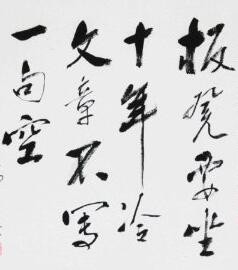 板凳要坐
十年冷
文章不写
一句空